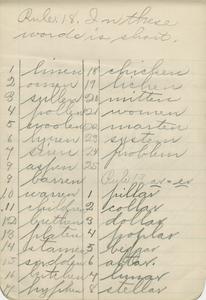 Rule 18. In these
words is short.
1 linen
2 omen
3 sullen
4 pollen
5 woolen
6 hyen
7 siren
8 aspen
9 barren
10 warren
11 children
12 brethren
13 platen
14 stamen
16 kitchen
17 hyphen
18 chicken
19 lichen
20 mitten
21 women
22 marten
23 system
24 problem
25
Rule 19. ar = er
1 pillar
2 collar
3 dollar
4 poplar
5 vulgar
6 altar
7 lunar
8 stellar